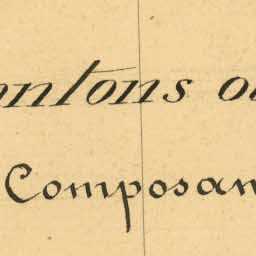 antons o
Composan